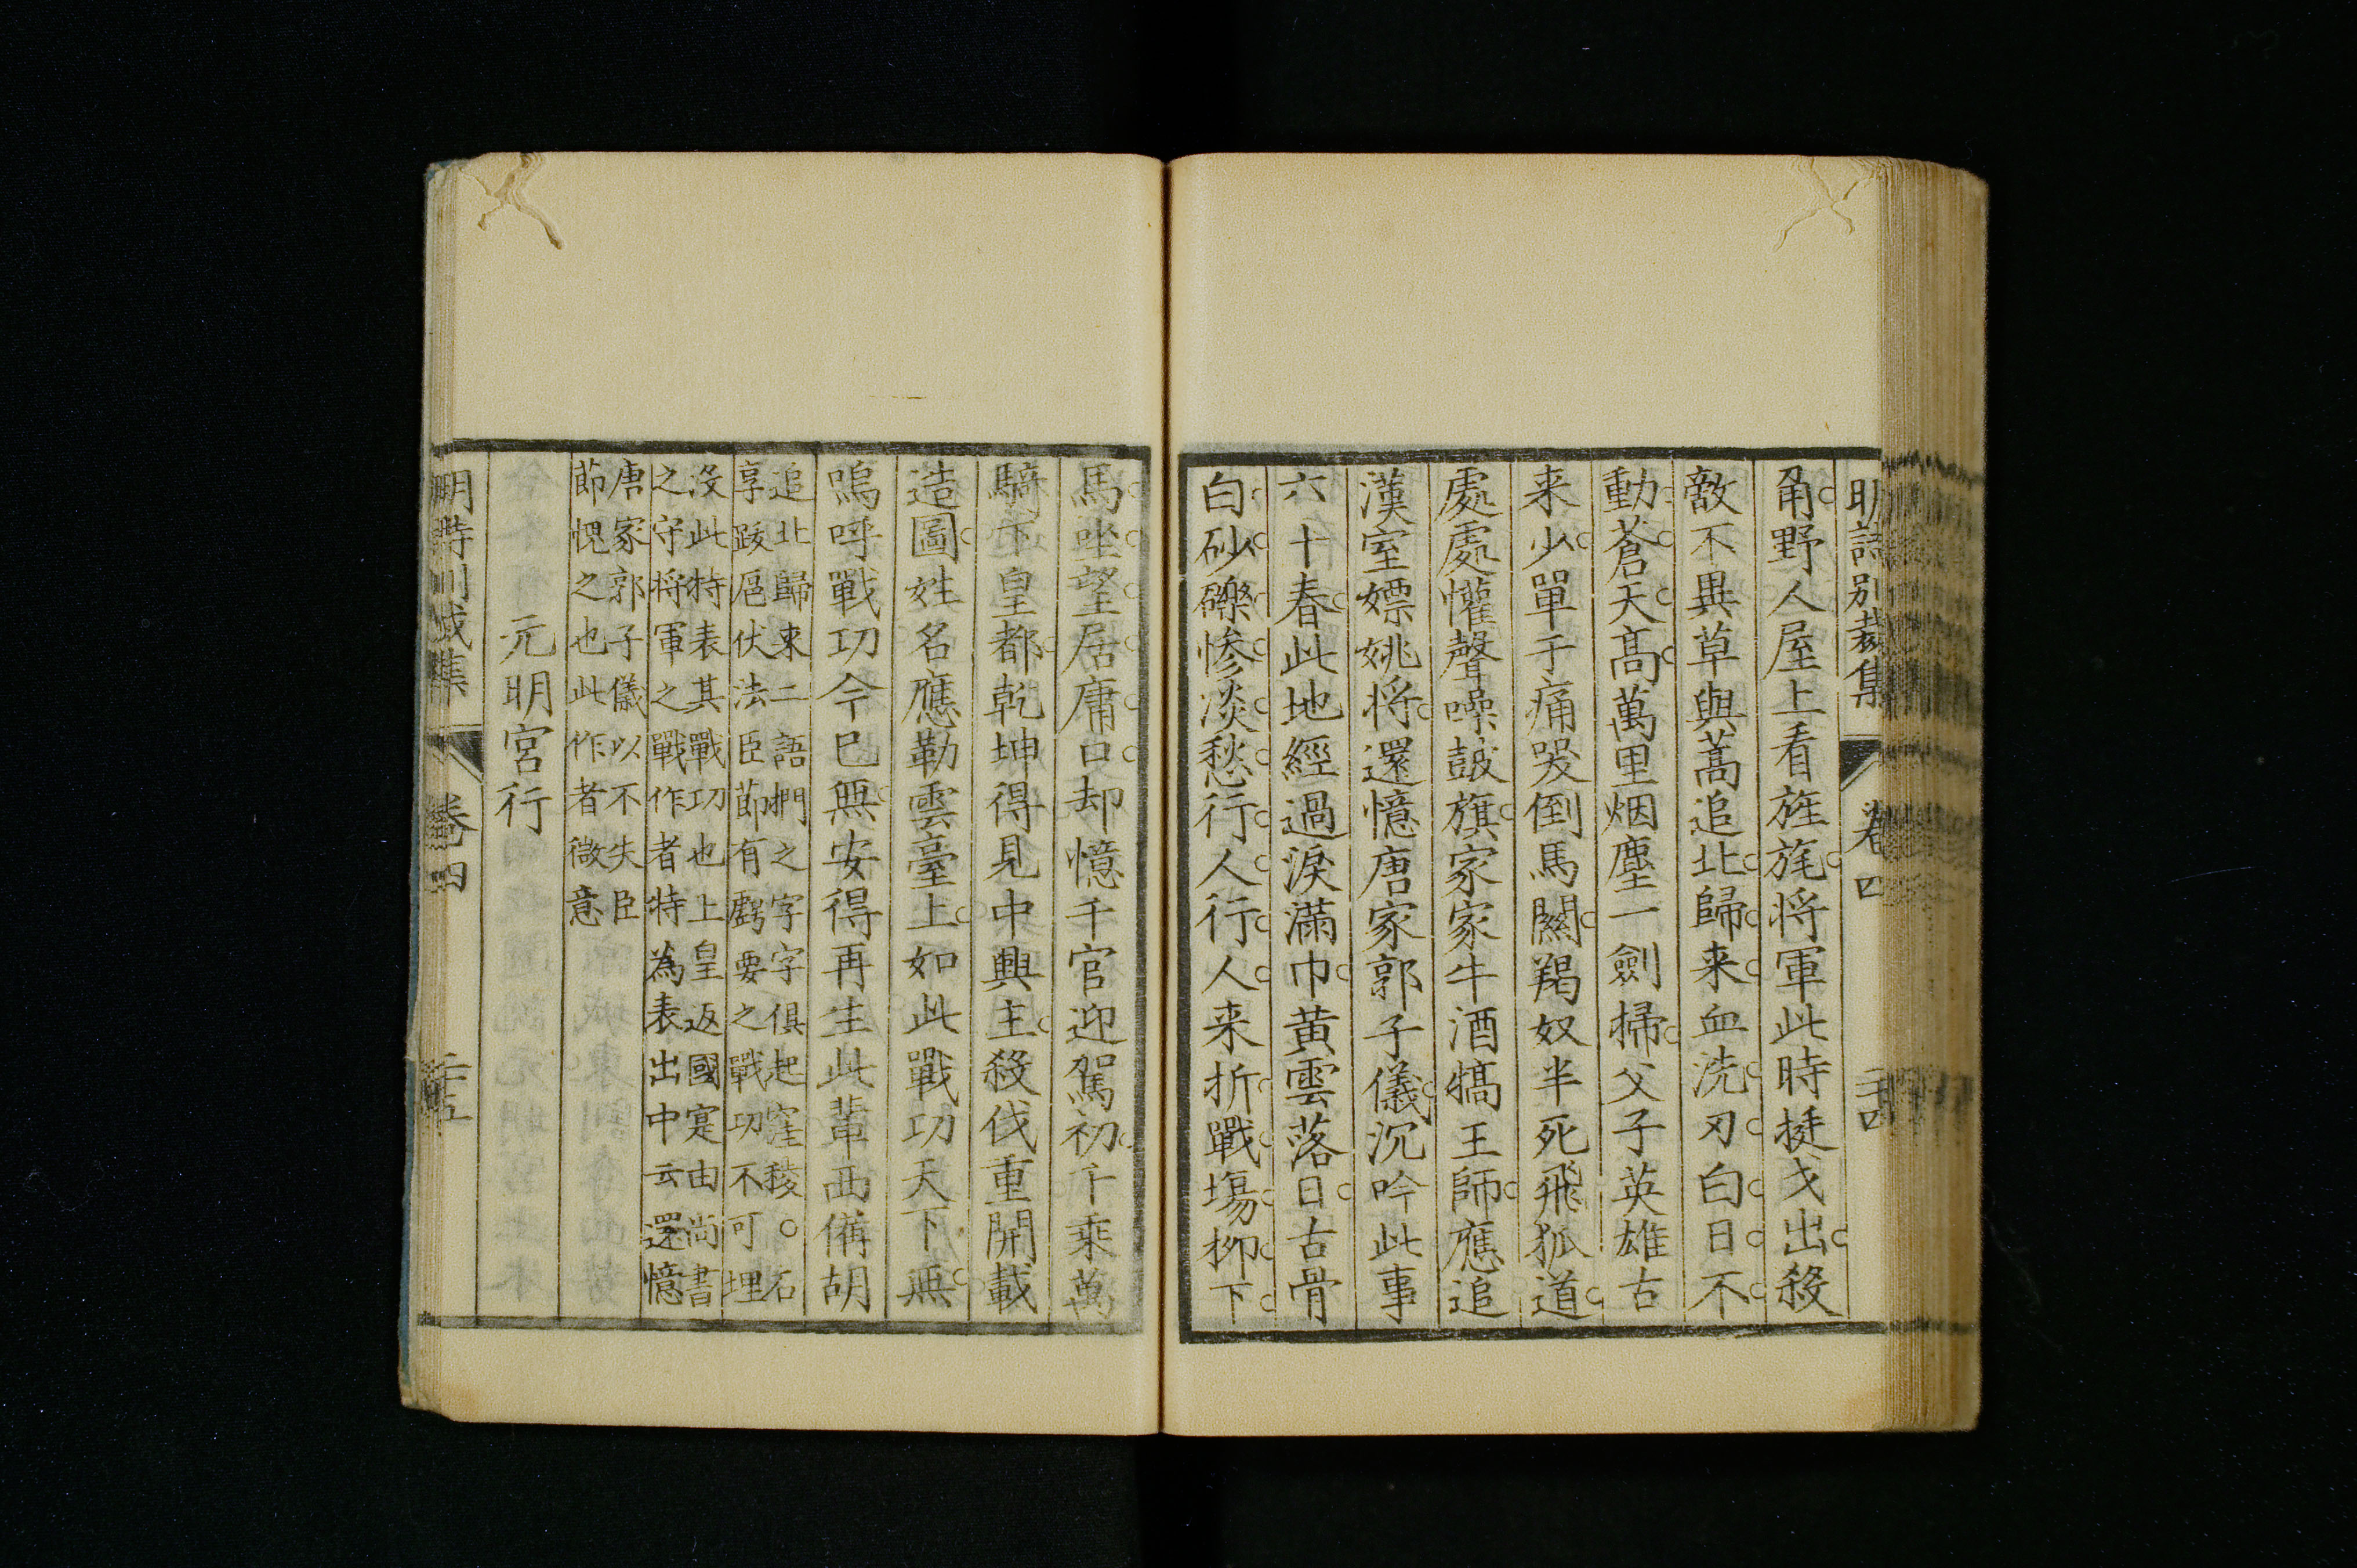 明詩別裁集 卷四 二十四
甬野人屋上看旌旄将軍此時挺戈出殺
敵不異草與蒿追北歸来血洗刃白日不
動蒼天髙萬里烟塵一劍掃父子英雄古
来少單于痛哭倒馬關羯奴半死飛狐道
處處懽聲噪鼓旗家家牛酒犒王師應追
漢室嫖姚将還憶唐家郭子儀沉吟此事
六十春此地經過淚滿巾黄雲落日古骨
白砂礫惨淡愁行人行人来折戰塲柳下
馬坐望居庸口却憶千官迎駕初千乘萬
騎下皇都乾坤得見中興主殺伐重開載
造圖姓名應勒雲臺上如此戰功天下無
嗚呼戰功今已無安得再生此輩西備胡
追北歸来二語捫之字字俱起窪稜○石
享跋扈伏法臣節有虧要之戰功不可埋
沒此特表其戰功也上皇返國寔由尚書
之守将軍之戰作者特為表出中云還憶
唐家郭子儀以不失臣
節愧之也此作者微意
元明宮行
明詩別裁集 卷四 二十五